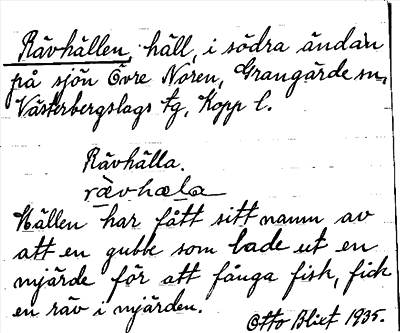 Rävhällen, häll, i södra ändan
på sjön Övre Noren, Grangärde sn,
Västerbergslags tg, Kopp l.
Rävhälla.
rævhæla
Hällen har fått sitt namn av
att en gubbe som lade ut en
mjärde för att fånga fisk, fick
en räv i mjärden.
Otto Blixt 1935.